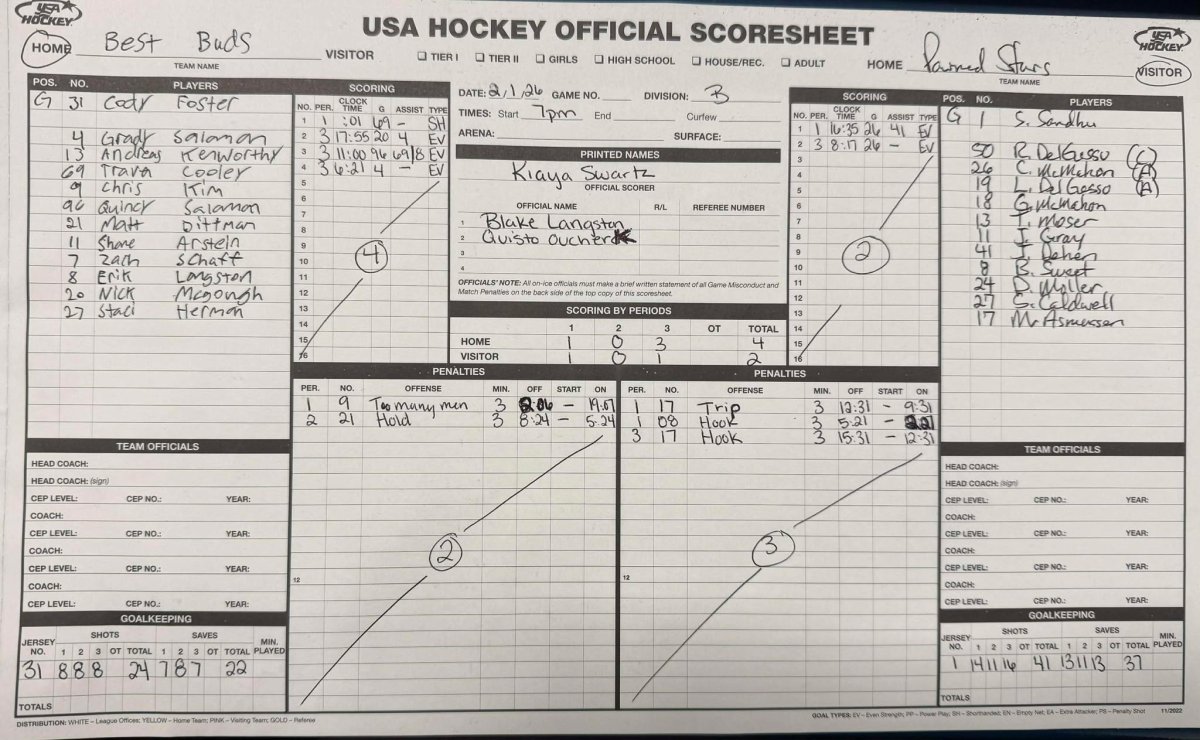 USA HOCKEY
USA HOCKEY OFFICIAL SCORESHEET
USA HOCKEY
HOME Best Buds VISITOR ☐ TIER I ☐ TIER II ☐ GIRLS ☐ HIGH SCHOOL ☐ HOUSE/REC. ☐ ADULT HOME Pawned Stars VISITOR
TEAM NAME TEAM NAME
POS. NO. PLAYERS
G 31 Cody Foster
4 Grady Salomon
13 Andreas Kenworthy
69 Trava Cooley
9 Chris Kim
96 Quincy Salomon
21 Matt Dittman
11 Shane Arstein
7 Zach Schaff
8 Erik Langston
20 Nick McGough
27 Staci Herman
SCORING
NO. PER. CLOCK TIME G ASSIST TYPE
1 1 :01 69 - SH
2 3 17:55 20 4 EV
3 3 11:00 96 69/8 EV
4 3 6:21 4 - EV
5
6
7
8
9
10
11
12
13
14
15
16
4
DATE: 2/1/26 GAME NO. DIVISION: B
TIMES: Start 7pm End Curfew
ARENA: SURFACE:
PRINTED NAMES
Kiaya Swartz
OFFICIAL SCORER
OFFICIAL NAME R/L REFEREE NUMBER
1 Blake Langston
2 Quisto
3
4
OFFICIALS' NOTE: All on-ice officials must make a brief written statement of all Game Misconduct and
Match Penalties on the back side of the top copy of this scoresheet.
SCORING BY PERIODS
1 2 3 OT TOTAL
HOME 1 0 3 4
VISITOR 1 0 1 2
SCORING
NO. PER. CLOCK TIME G ASSIST TYPE
1 1 16:35 26 41 EV
2 3 8:17 26 - EV
3
4
5
6
7
8
9
10
11
12
13
14
15
16
2
POS. NO. PLAYERS
G 1 S. Sandhu
50 R. DelGesso (C)
26 C. McMahon (A)
19 L. DelGesso (A)
18 G. McMahon
13 T. Moser
11 J. Gray
41 J. Dehen
8 B. Sweet
24 D. Moller
27 S. Caldwell
17 M. Asmussen
PENALTIES
PER. NO. OFFENSE MIN. OFF START ON
1 9 Too many men 3 2:06 - 19:07
2 21 Hold 3 8:24 - 5:24
12
2
PENALTIES
PER. NO. OFFENSE MIN. OFF START ON
1 17 Trip 3 12:31 - 9:31
1 08 Hook 3 5:21 - 2:21
3 17 Hook 3 15:31 - 12:31
12
3
TEAM OFFICIALS
HEAD COACH:
HEAD COACH: (sign)
CEP LEVEL: CEP NO.: YEAR:
COACH:
CEP LEVEL: CEP NO.: YEAR:
COACH:
CEP LEVEL: CEP NO.: YEAR:
COACH:
CEP LEVEL: CEP NO.: YEAR:
GOALKEEPING
JERSEY NO. SHOTS 1 2 3 OT TOTAL SAVES 1 2 3 OT TOTAL MIN. PLAYED
31 8 8 8 24 7 8 7 22
TOTALS
TEAM OFFICIALS
HEAD COACH:
HEAD COACH: (sign)
CEP LEVEL: CEP NO.: YEAR:
COACH:
CEP LEVEL: CEP NO.: YEAR:
COACH:
CEP LEVEL: CEP NO.: YEAR:
COACH:
CEP LEVEL: CEP NO.: YEAR:
GOALKEEPING
JERSEY NO. SHOTS 1 2 3 OT TOTAL SAVES 1 2 3 OT TOTAL MIN. PLAYED
1 14 11 16 41 13 11 13 37
TOTALS
DISTRIBUTION: WHITE – League Offices; YELLOW – Home Team; PINK – Visiting Team; GOLD – Referee
GOAL TYPES: EV – Even Strength; PP – Power Play; SH – Shorthanded; EN – Empty Net; EA – Extra Attacker; PS – Penalty Shot 11/2022